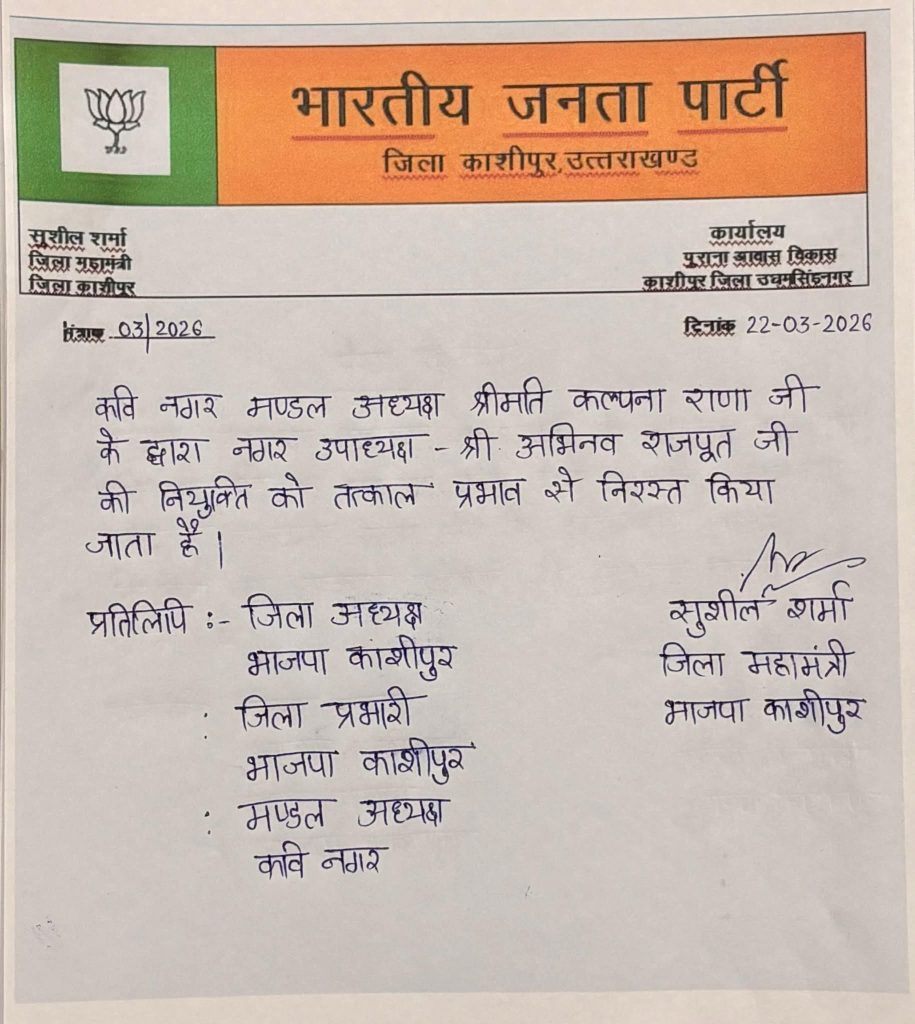 भारतीय जनता पार्टी
जिला काशीपुर,उत्तराखण्ड
सुशील शर्मा
जिला महामंत्री
जिला काशीपुर
कार्यालय
पुराना आवास विकास
काशीपुर जिला उधमसिंहनगर
03/2026
दिनांक 22-03-2026
कवि नगर मण्डल अध्यक्ष श्रीमति कल्पना राणा जी
के द्वारा नगर उपाध्यक्ष - श्री अभिनव राजपूत जी
की नियुक्ति को तत्काल प्रभाव से निरस्त किया
जाता है।
प्रतिलिपि :- जिला अध्यक्ष
भाजपा काशीपुर
: जिला प्रभारी
भाजपा काशीपुर
: मण्डल अध्यक्ष
कवि नगर
सुशील शर्मा
जिला महामंत्री
भाजपा काशीपुर